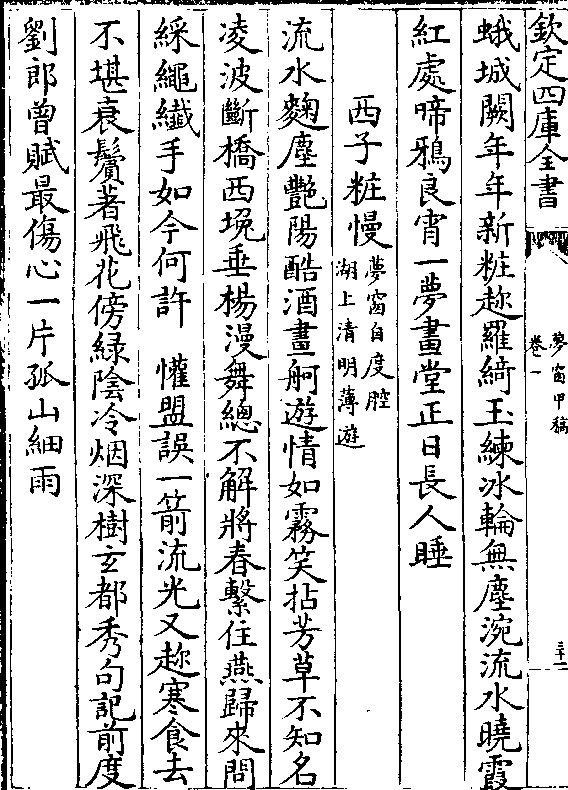 欽定四庫全書
夢窗甲稿
卷一
三十二
蛾城闕年年新粧趂羅綺玉練冰輪無塵涴流水曉霞
紅處啼鴉良宵一夢畫堂正日長人睡
西子粧慢夢窗自度腔
湖上清明薄遊
流水麴塵艷陽酷酒畫舸遊情如霧笑拈芳草不知名
凌波斷橋西堍垂楊漫舞總不解將春繫住燕歸來問
綵繩纖手如今何許 懽盟誤一箭流光又趂寒食去
不堪衰鬢著飛花傍緑陰冷烟深樹玄都秀句記前度
劉郎曾賦最傷心一片孤山細雨